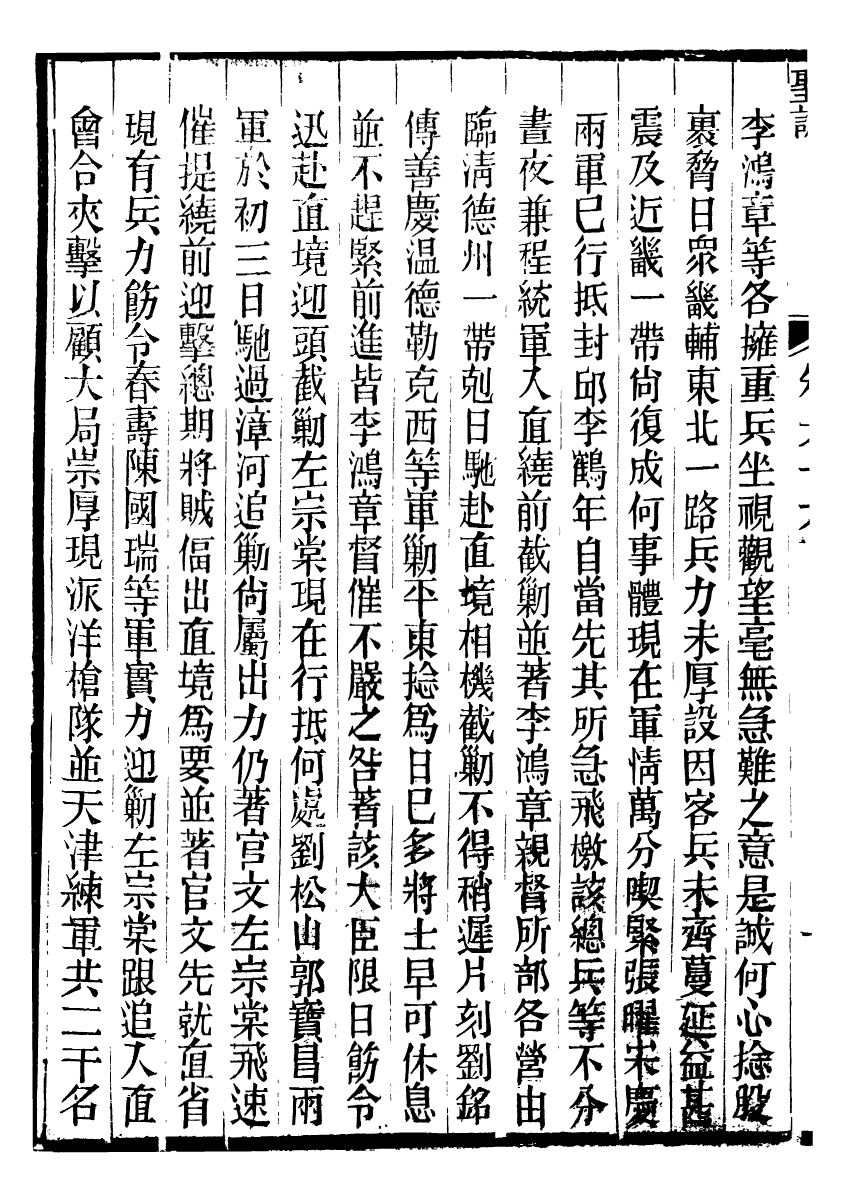 聖訓
李鴻章等各擁重兵坐視觀望毫無急難之意是誠何心捻股
裹脅日眾畿輔東北一路兵力未厚設因客兵未齊蔓延益甚
震及近畿一帶尙復成何事體現在軍情萬分喫緊張曜宋慶
兩軍已行抵封邱李鶴年自當先其所急飛檄該總兵等不分
晝夜兼程統軍入直繞前截勦並著李鴻章親督所部各營由
臨淸德州一帶剋日馳赴直境相機截勦不得稍遲片刻劉銘
傳善慶温德勒克西等軍勦平東捻爲日已多將士早可休息
並不趕緊前進皆李鴻章督催不嚴之咎著該大臣限日飭令
迅赴直境迎頭截勦左宗棠現在行抵何處劉松山郭寶昌兩
軍於初三日馳過漳河追勦尙屬出力仍著官文左宗棠飛速
催提繞前迎擊總期將賊偪出直境爲要並著官文先就直省
現有兵力飭令春壽陳國瑞等軍實力迎勦左宗棠跟追入直
會合夾擊以顧大局崇厚現派洋槍隊並天津練軍共二千名